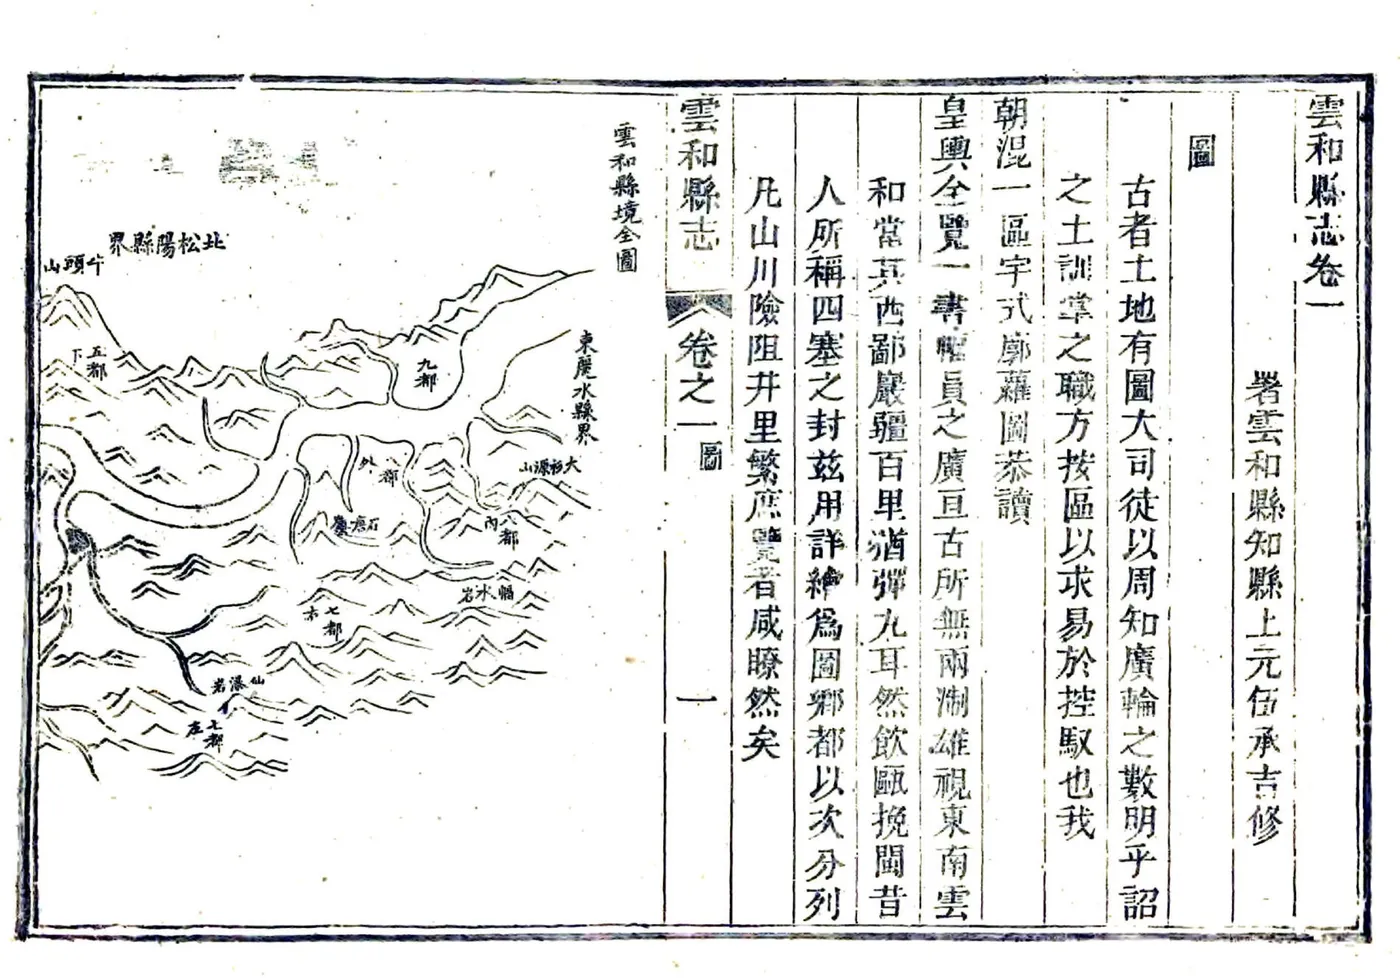 雲和縣志卷一
署雲和縣知縣上元伍承吉修
圖
古者土地有圖大司徒以周知廣輪之數明乎詔
之土訓掌之職方按區以求易於控馭也我
朝混一區宇式廓蘿圖恭讀
皇輿全覽一書幅員之廣亘古所無兩浙雄視東南雲
和當其西鄙嚴疆百里猶彈丸耳然飲甌挽閩昔
人所稱四塞之封茲用詳繪爲圖鄉都以次分列
凡山川險阻井里繁庶覽者咸瞭然矣
雲和縣志
卷之一
圖
一
雲和縣境全圖
東麗水縣界
北松陽縣界
牛頭山
五都
下
九都
外
八都
大
源山
石塘
八都
內
水岩
七都
木
仙瀑岩
七都
左